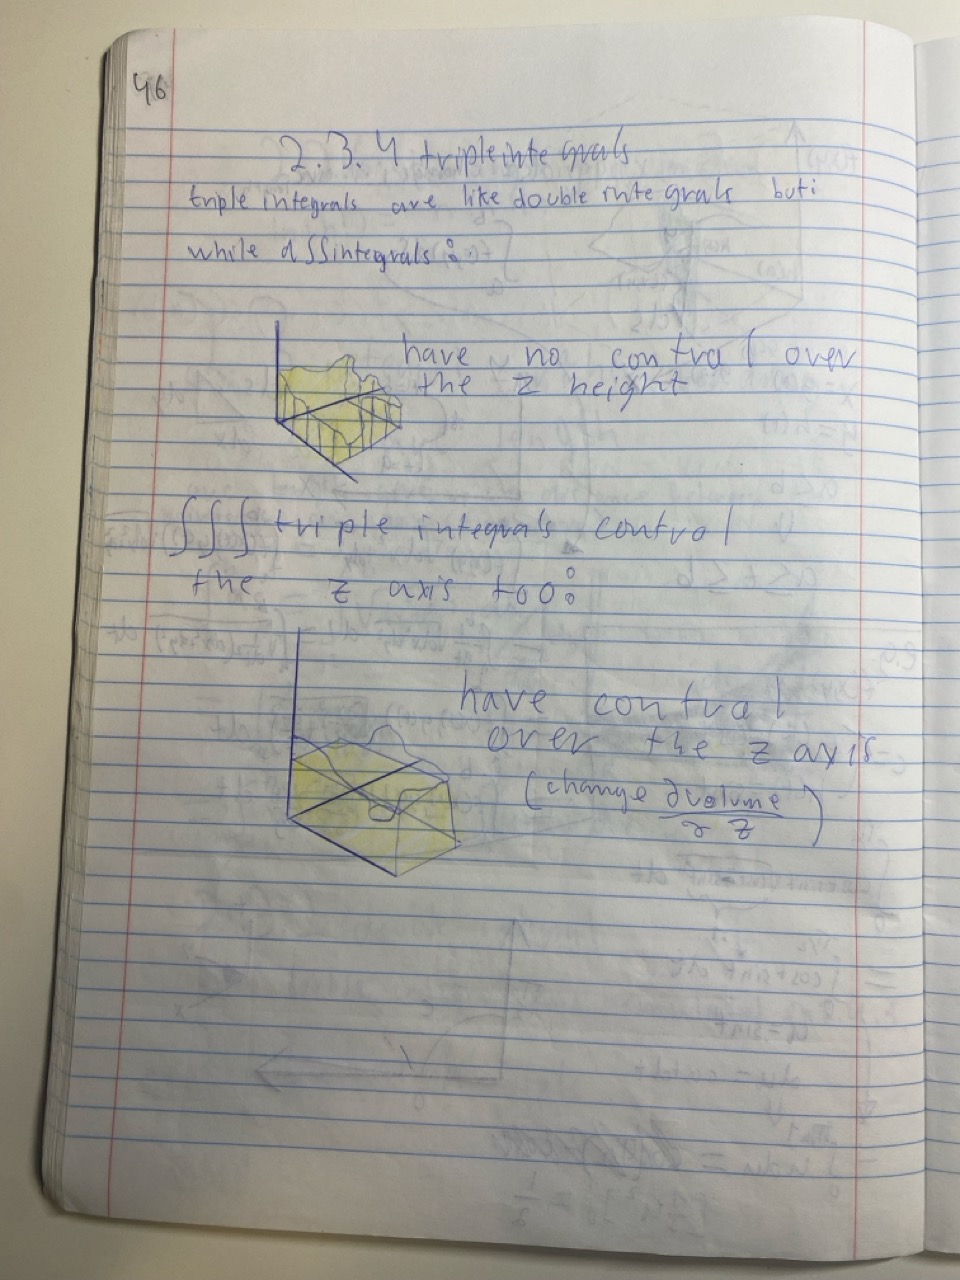 46
2.3.4 triple integrals
triple integrals are like double integrals but:
while d∫∫integrals:
have no control over
the z height
∫∫∫ triple integrals control
the z axis too:
have control
over the z axis
(change ∂volume
∂ z)